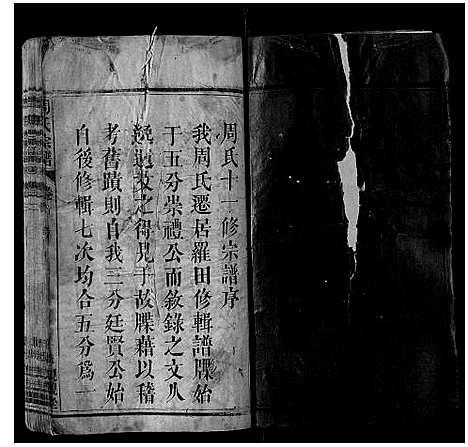 周氏十一修宗譜序
我周氏遷居羅田修輯譜牒始
于五分崇禮公而敘錄之文从
之得見于故牒藉以稽
考舊蹟則自我三分廷賢公始
自後修輯七次均合五分為一